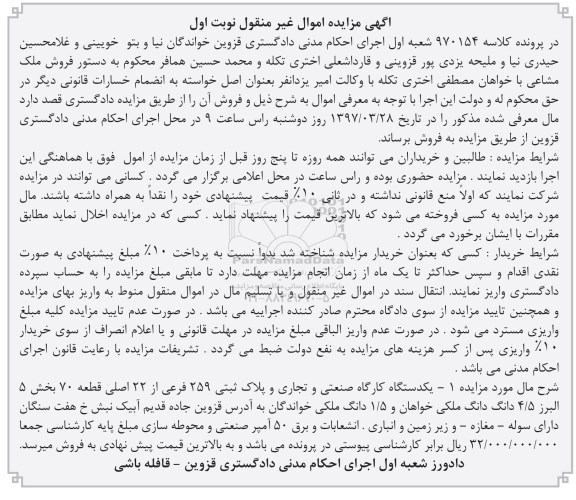 آگهی مزایده اموال غیر منقول نوبت اول
در پرونده کلاسه ۹۷۰۱۵۴ شعبه اول اجرای احکام مدنی دادگستری قزوین خواندگان نیا و بتو خویینی و غلامحسین
حیدری نیا و ملیحه یزدی پور قزوینی و قارداشعلی اختری تکله و محمد حسین همافر محکوم به دستور فروش ملک
مشاعی با خواهان مصطفی اختری تکله با وکالت امیر یزدانفر بعنوان اصل خواسته به انضمام خسارات قانونی دیگر در
حق محکوم له و دولت این اجرا با توجه به معرفی اموال به شرح ذیل و فروش آن را از طریق مزایده دادگستری قصد دارد
مال معرفی شده مذکور را در تاریخ ۱۳۹۷/۰۳/۲۸ روز دوشنبه راس ساعت ۹ در محل اجرای احکام مدنی دادگستری
قزوین از طریق مزایده به فروش برساند.
شرایط مزایده : طالبین و خریداران می توانند همه روزه تا پنج روز قبل از زمان مزایده از امول فوق با هماهنگی این
اجرا بازدید نمایند . مزایده حضوری بوده و راس ساعت در محل اعلامی برگزار می گردد . کسانی می توانند در مزایده
شرکت نمایند که اولا منع قانونی نداشته و در ثانی ۱۰٪ قیمت پیشنهادی خود را نقداً به همراه داشته باشند. مال
مورد مزایده به کسی فروخته می شود که بالاترین قیمت را پیشنهاد نماید . کسی که در مزایده اخلال نماید مطابق
مقررات با ایشان برخورد می گردد .
شرایط خریدار : کسی که بعنوان خریدار مزایده شناخته شد بدواً نسبت به پرداخت ۱۰٪ مبلغ پیشنهادی به صورت
نقدی اقدام و سپس حداکثر تا یک ماه از زمان انجام مزایده مهلت دارد تا مابقی مبلغ مزایده را به حساب سپرده
دادگستری واریز نمایند. انتقال سند در اموال غیر منقول و یا تسلیم مال در اموال منقول منوط به واریز بهای مزایده
و همچنین تایید مزایده از سوی دادگاه محترم صادر کننده اجراییه می باشد . در صورت عدم تایید مزایده کلیه مبلغ
واریزی مسترد می شود . در صورت عدم واریز الباقی مبلغ مزایده در مهلت قانونی و یا اعلام انصراف از سوی خریدار
۱۰٪ واریزی پس از کسر هزینه های مزایده به نفع دولت ضبط می گردد . تشریفات مزایده با رعایت قانون اجرای
احکام مدنی می باشد .
شرح مال مورد مزایده ۱ – یکدستگاه کارگاه صنعتی و تجاری و پلاک ثبتی ۲۵۹ فرعی از ۲۲ اصلی قطعه ۷۰ بخش ۵
البرز ۴/۵ دانگ دانگ ملکی خواهان و ۱/۵ دانگ ملکی خواندگان به آدرس قزوین جاده قدیم آبیک نبش خ هفت سنگان
دارای سوله – مغازه – و زیر زمین و انباری . انشعابات و برق ۵۰ آمپر صنعتی و محوطه سازی مبلغ پایه کارشناسی جمعا
۳۲/۰۰۰/۰۰۰/۰۰۰ ریال برابر کارشناسی پیوستی در پرونده می باشد و به بالاترین قیمت پیش نهادی به فروش میرسد.
دادورز شعبه اول اجرای احکام مدنی دادگستری قزوین – قافله باشی